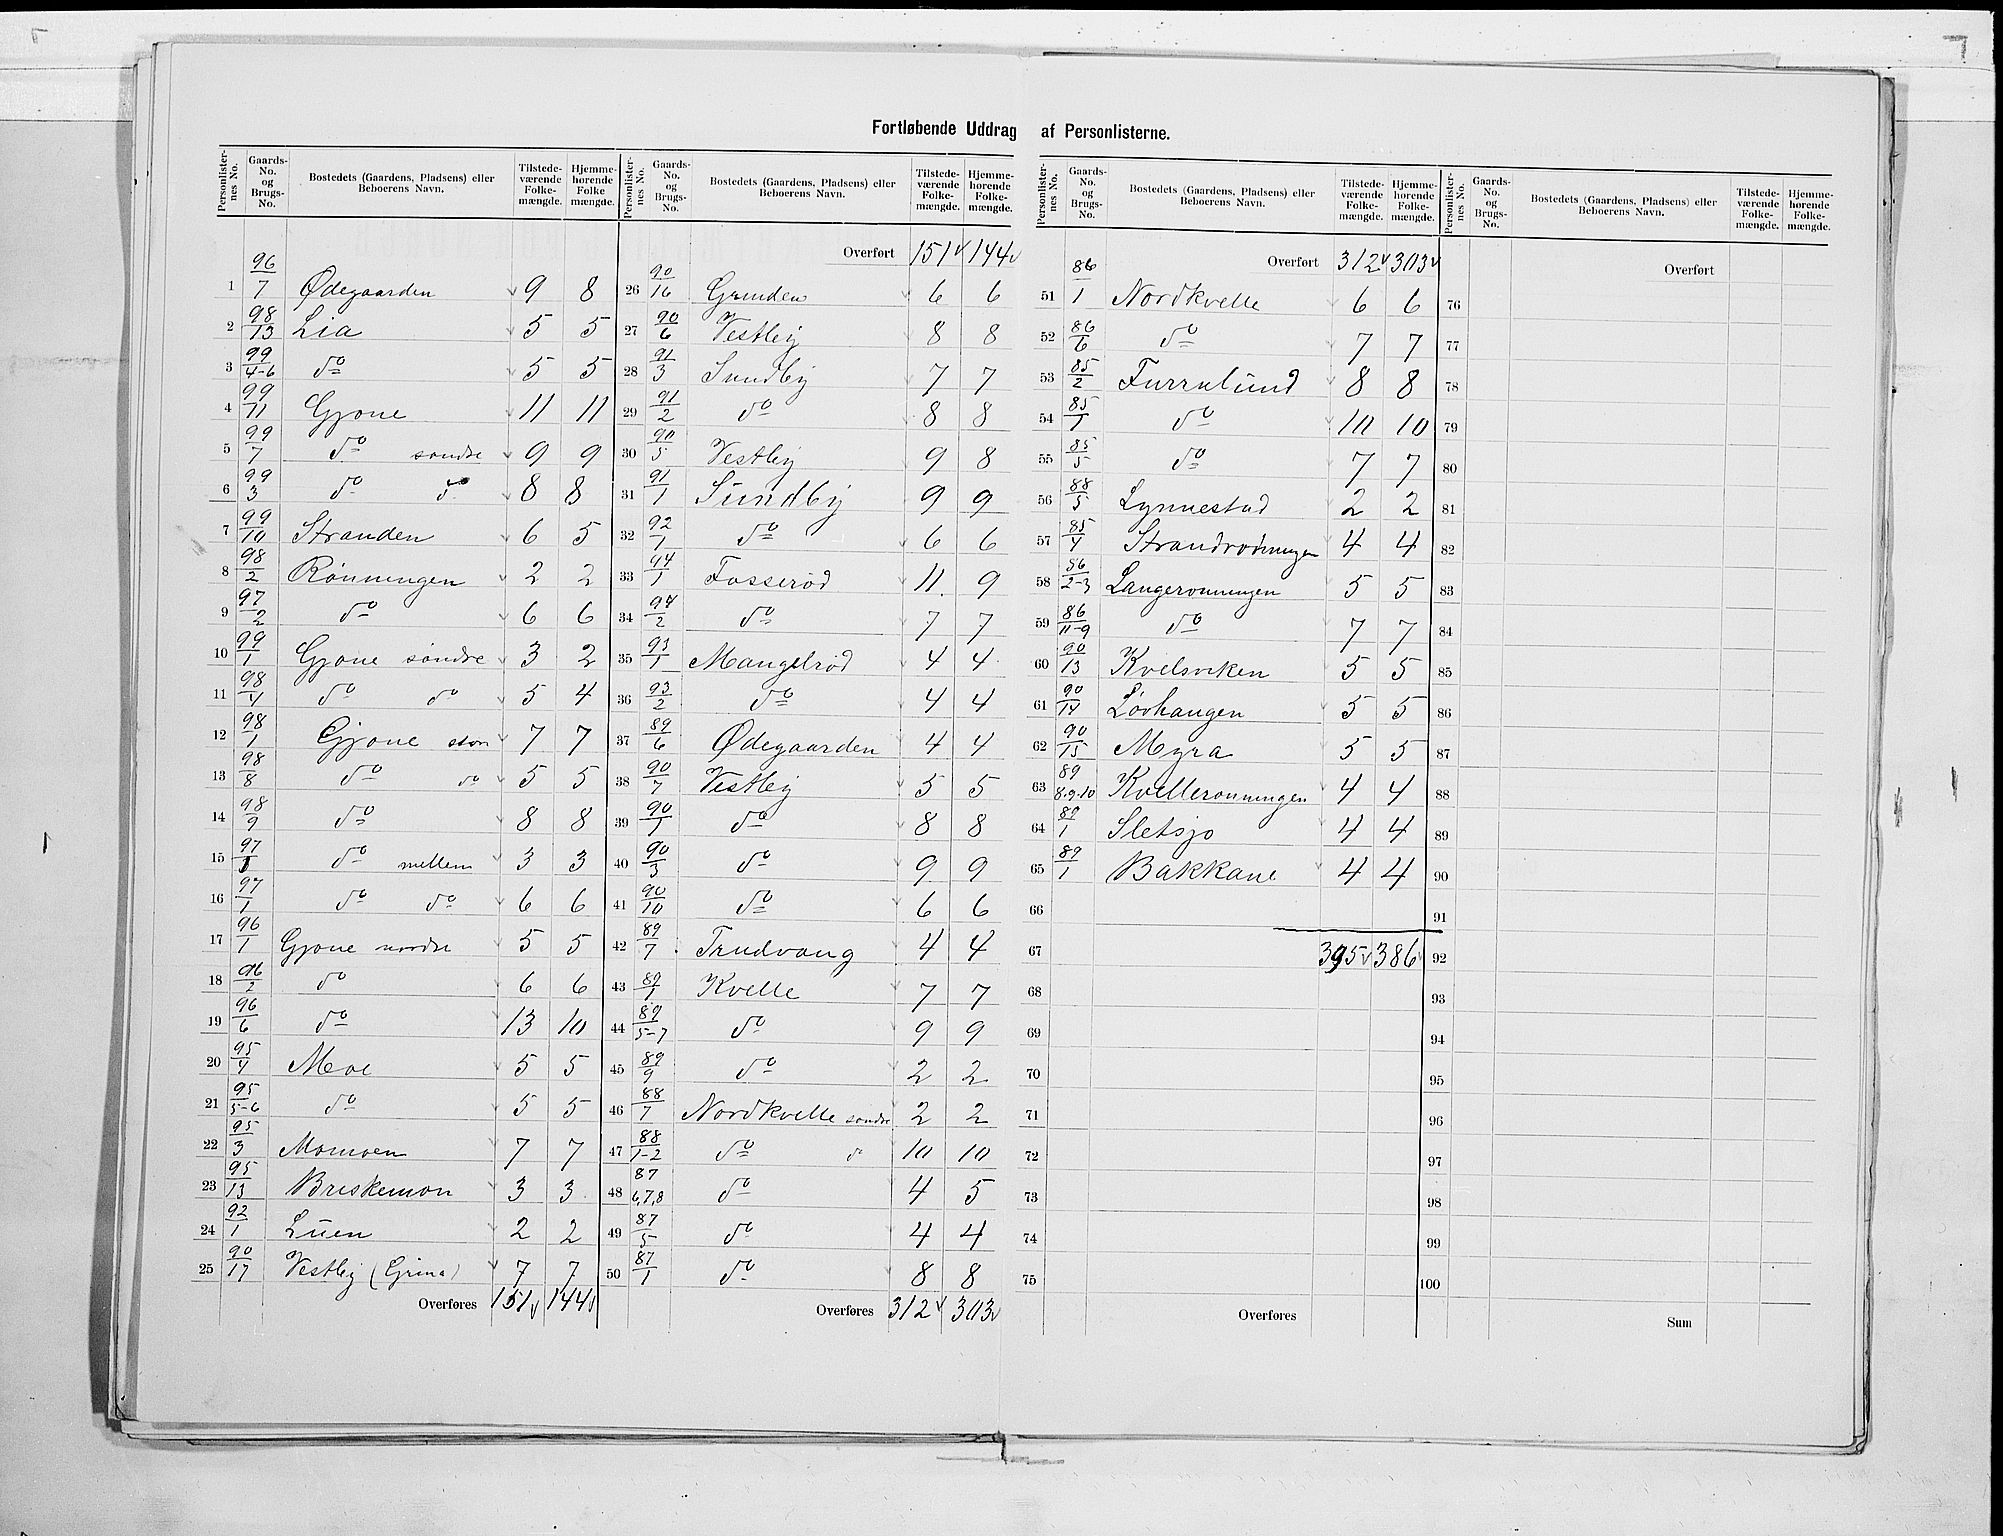 Fortløbende Uddrag af Personlisterne.
Personlisternes No. | Gaards-No. og Brugs-No. | Bostedets (Gaardens, Pladsens) eller Beboerens Navn. | Tilstedeværende Folkemængde. | Hjemmehørende Folkemængde.
1 96/7 Ødegaarden 9 8
2 98/13 Lia 5 5
3 99/4-6 do 5 5
4 99/11 Gjone 11 11
5 99/7 do søndre 9 9
6 99/3 do do 8 8
7 99/10 Stranden 6 5
8 98/2 Rønningen 2 2
9 97/2 do 6 6
10 99/1 Gjone søndre 3 2
11 98/4 do do 5 4
12 98/1 Gjone 7 7
13 98/8 do do 5 5
14 98/9 do 8 8
15 97/ do mellem 3 3
16 97/1 do do 6 6
17 96/1 Gjone nordre 5 5
18 96/2 do 6 6
19 96/6 do 13 10
20 95/4 Moe 5 5
21 95/5-6 do 5 5
22 95/3 Momoen 7 7
23 95/13 Briskemon 3 3
24 92/1 Luen 2 2
25 90/17 Vestby (Grina) 7 7
Overføres 151 144
Overført 151 144
26 90/16 Grinden 6 6
27 90/6 Vestby 8 8
28 91/3 Sundby 7 7
29 91/2 do 8 8
30 90/5 Vestby 9 8
31 91/1 Sundby 9 9
32 92/1 do 6 6
33 94/1 Fosserød 11 9
34 94/2 do 7 7
35 93/1 Mangelrød 4 4
36 93/2 do 4 4
37 89/6 Ødegaarden 4 4
38 90/7 Vestby 5 5
39 90/1 do 8 8
40 90/3 do 9 9
41 90/10 do 6 6
42 89/7 Trudvang 4 4
43 89/1 Kvelle 7 7
44 89/5-7 do 9 9
45 89/9 do 2 2
46 88/7 Nordkvelle søndre 2 2
47 88/1-2 do do 10 10
48 87/6,7,8 do 4 5
49 87/5 do 4 4
50 87/1 do 8 8
Overføres 312 303
Overført 312 303
51 86/1 Nordkvelle 6 6
52 86/6 do 7 7
53 85/2 Furrulund 8 8
54 85/1 do 10 10
55 85/5 do 7 7
56 88/5 Lynnestad 2 2
57 85/4 Strandrødningen 4 4
58 56/2-3 Langerønningen 5 5
59 86/11-9 do 7 7
60 90/13 Kvelsviken 5 5
61 90/14 Løvhaugen 5 5
62 90/15 Myra 5 5
63 89/8.9.10 Kvellerønningen 4 4
64 89/1 Sletsjo 4 4
65 89/1 Bakkane 4 4
66
67 395 386
68
69
70
71
72
73
74
75
Overføres
Overført
76
77
78
79
80
81
82
83
84
85
86
87
88
89
90
91
92
93
94
95
96
97
98
99
100
Sum